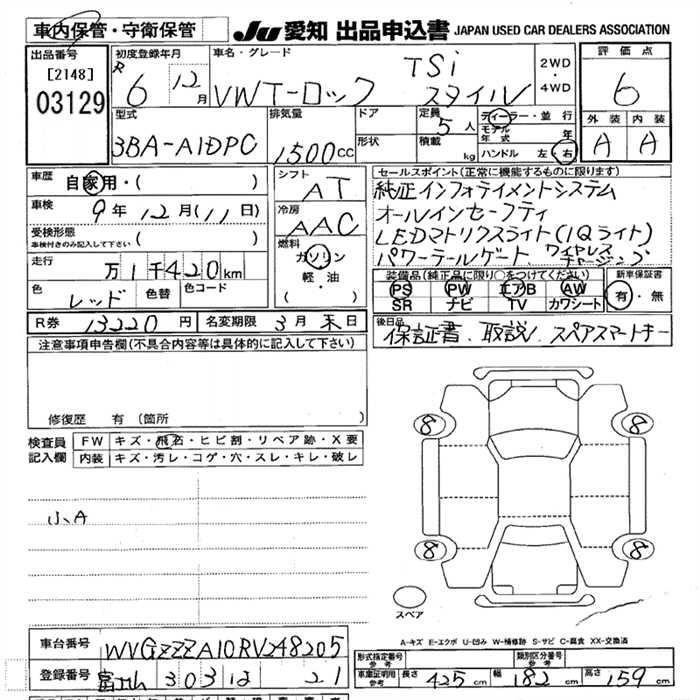 車内保管・守衛保管
JU 愛知 出品申込書 JAPAN USED CAR DEALERS ASSOCIATION
出品番号
[2148]
03129
初度登録年月
R 6 12月
車名・グレード
VW T-ロック TSi スタイル
2WD・4WD
評価点
6
外装 内装
A A
型式
3BA-A1DPC
排気量
1500cc
ドア
形状
定員 5人
積載 kg
ディーラー・並行
モデル年式 年
ハンドル 左・右
車歴 自家用・( )
車検 9年12月(11日)
受検形態
車検付きのみ記入して下さい ( )
走行 万1千420km
色 レッド 色替 色コード
シフト AT
冷房 AAC
燃料 ガソリン
軽・油
セールスポイント(正常に機能するものに限ります)
純正インフォテイメントシステム
オールインセーフティ
LEDマトリクスライト(IQライト)
パワーテールゲート、ワイヤレスチャージング
装備品(純正品に限り○をつけてください)
PS PW エアB AW
SR ナビ TV カワシート
新車保証書
有・無
R券 13220円 名変期限 3月末日
後日品
保証書、取説、スペアスマートキー
注意事項申告欄(不具合内容等は具体的に記入して下さい)
修復歴 有(箇所 )
検査員記入欄
FW キズ・飛石・ヒビ割・リペア跡・X要
内装 キズ・汚レ・コゲ・穴・スレ・キレ・破レ
小、A
8 8
8 8
スペア
A-キズ E-エクボ U-凹み W-補修跡 S-サビ C-腐食 XX-交換済
車台番号 WVGZZZA10RV248205
登録番号 303 12 21
形式指定番号 参考
類別区分番号 参考
車庫証明用 参考 長さ 425cm 幅 182cm 高さ 159cm